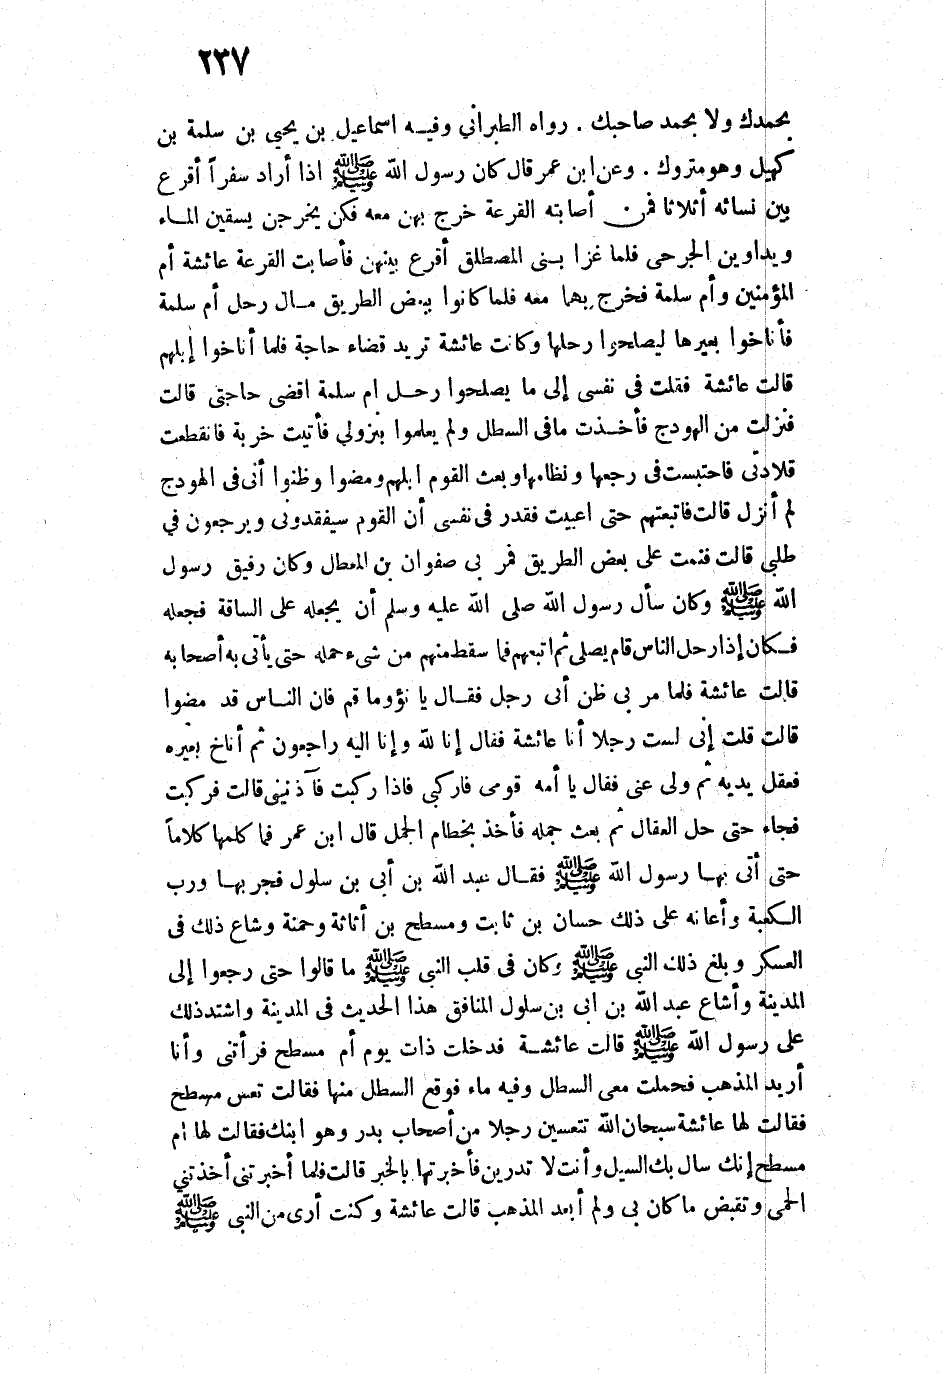 ٢٣٧
بحمدك ولا بحمد صاحبك . رواه الطبراني وفيه اسماعيل بن يحيي بن سلمة بن
كهيل وهو متروك . وعن ابن عمر قال كان رسول الله ﷺ اذا أراد سفراً أقرع
بين نسائه أثلاثا فمن أصابته القرعة خرج بهن معه فكن يخرجن يسقين الماء
ويداوين الجرحى فلما غزا بنى المصطلق أقرع بينهن فأصابت القرعة عائشة أم
المؤمنين وأم سلمة فخرج بهما معه فلما كانوا ببعض الطريق مال رحل أم سلمة
فأناخوا بعيرها ليصلحوا رحلها وكانت عائشة تريد قضاء حاجة فلما أناخوا إبلهم
قالت عائشة فقلت فى نفسى إلى ما يصلحوا رحل ام سلمة اقضى حاجتى قالت
فنزلت من الهودج فأخذت مافى السطل ولم يعلموا بنزولي فأتيت خربة فانقطعت
قلادتى فاحتبست فى رجعها ونظامها وبعث القوم ابلهم ومضوا وظنوا أنى فى الهودج
لم أنزل قالت فاتبعتهم حتى اعييت فقدر فى نفسى أن القوم سيفقدونى ويرجعون في
طلبى قالت فنمت على بعض الطريق فمر بى صفوان بن المعطل وكان رفيق رسول
الله ﷺ وكان سأل رسول الله صلى الله عليه وسلم أن يجعله على الساقة فجعله
فكان إذا رحل الناس قام يصلى ثم اتبعهم فما سقط منهم من شىء حمله حتى يأتى به أصحابه
قالت عائشة فلما مر بى ظن أنى رجل فقال يا نؤوما قم فان الناس قد مضوا
قالت قلت إنى لست رجلا أنا عائشة فقال إنا لله وإنا اليه راجعون ثم أناخ بعيره
فعقل يديه ثم ولى عنى فقال يا أمه قومى فاركبى فاذا ركبت فآذنينى قالت فركبت
فجاء حتى حل العقال ثم بعث جمله فأخذ بخطام الجمل قال ابن عمر فما كلمها كلاماً
حتى أتى بها رسول الله ﷺ فقال عبد الله بن أبي بن سلول فجر بها ورب
الكعبة وأعانه على ذلك حسان بن ثابت ومسطح بن أثاثة وحمنة وشاع ذلك فى
العسكر وبلغ ذلك النبى ﷺ وكان فى قلب النبى ﷺ ما قالوا حتى رجعوا إلى
المدينة وأشاع عبد الله بن ابى بن سلول المنافق هذا الحديث فى المدينة واشتد ذلك
على رسول الله ﷺ قالت عائشة فدخلت ذات يوم أم مسطح فرأتنى وأنا
أريد المذهب فحملت معى السطل وفيه ماء فوقع السطل منها فقالت تعس مسطح
فقالت لها عائشة سبحان الله تتعسين رجلا من أصحاب بدر وهو ابنك فقالت لها أم
مسطح إنك سال بك السيل وأنت لا تدرين فأخبرتها بالخبر قالت فلما أخبرتنى أخذتني
الحمى وتقبض ما كان بى ولم أبعد المذهب قالت عائشة وكنت أرى من النبى ﷺ